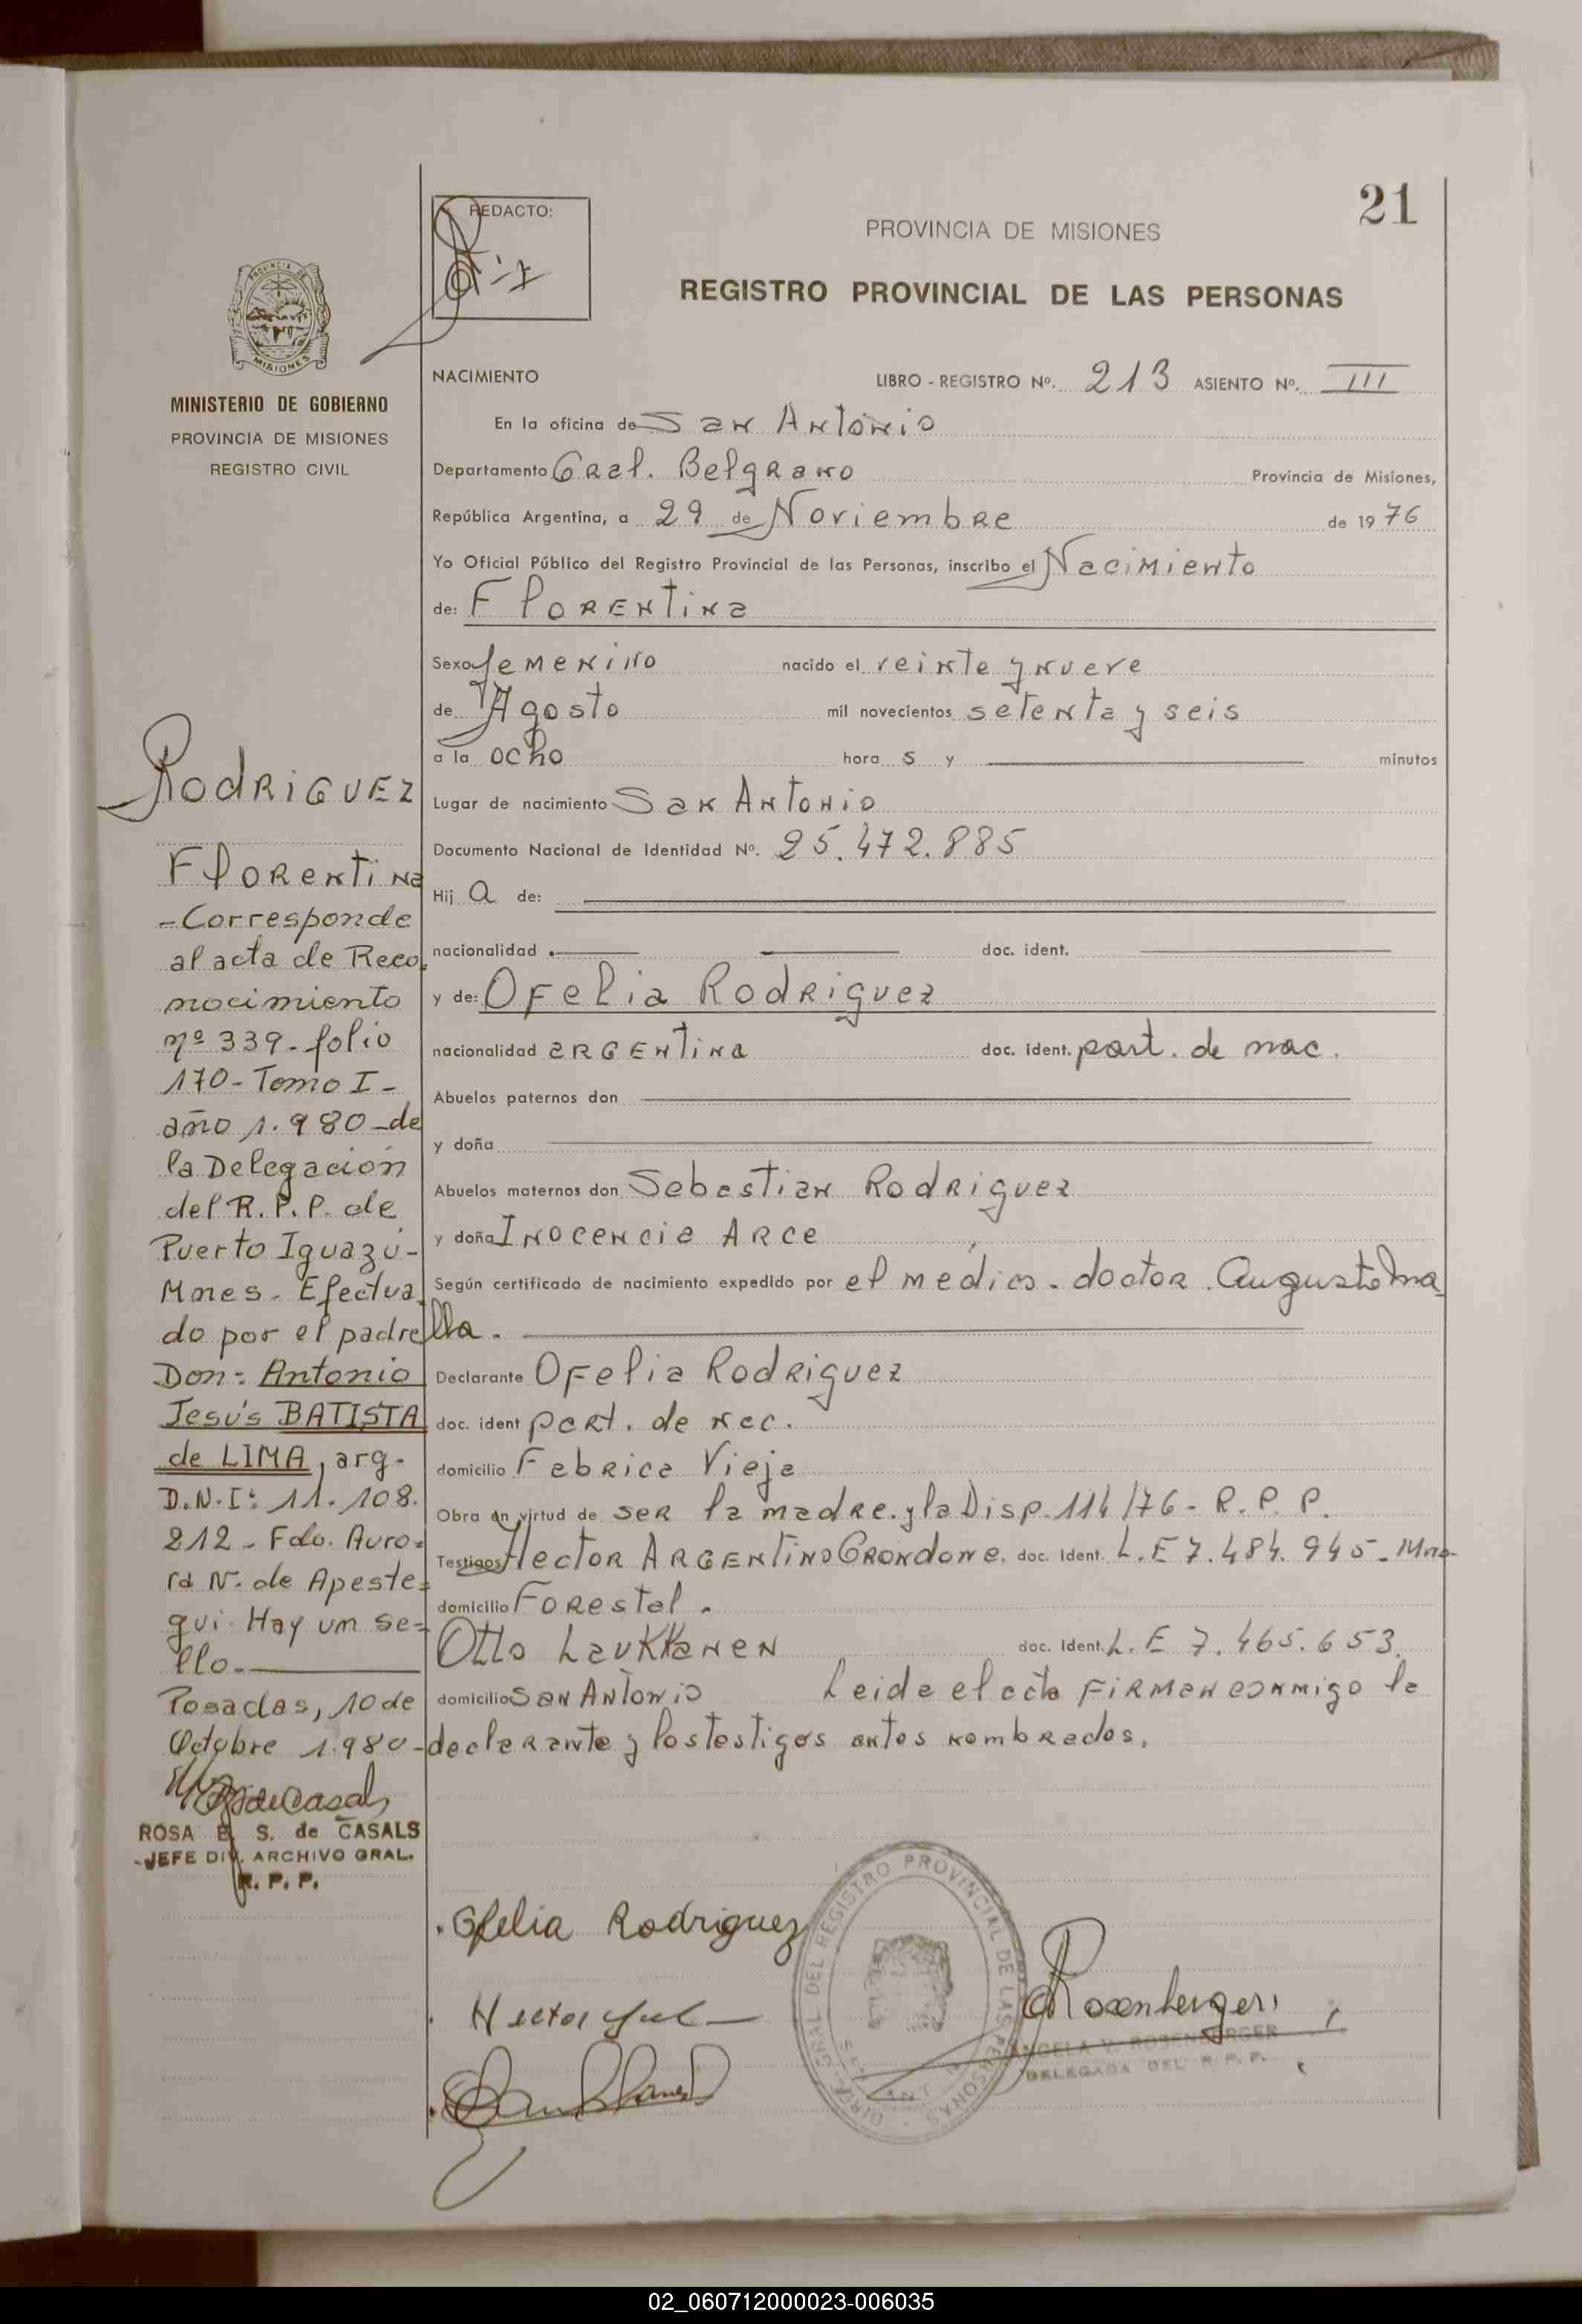 21
REDACTO:
PROVINCIA DE MISIONES
REGISTRO PROVINCIAL DE LAS PERSONAS
PROVINCIA DE
MISIONES
MINISTERIO DE GOBIERNO
PROVINCIA DE MISIONES
REGISTRO CIVIL
NACIMIENTO LIBRO - REGISTRO Nº. 213 ASIENTO Nº. III
En la oficina de San Antonio
Departamento Gral. Belgrano Provincia de Misiones,
República Argentina, a 29 de Noviembre de 1976
Yo Oficial Público del Registro Provincial de las Personas, inscribo el Nacimiento
de: Florentina
Sexo femenino nacido el veinte y nueve
de Agosto mil novecientos setenta y seis
a la ocho hora s y minutos
Lugar de nacimiento San Antonio
Documento Nacional de Identidad Nº. 25.472.885
Hij a de:
nacionalidad doc. ident.
y de: Ofelia Rodriguez
nacionalidad argentina doc. ident. part. de nac.
Abuelos paternos don
y doña
Abuelos maternos don Sebastian Rodriguez
y doña Inocencia Arce
Según certificado de nacimiento expedido por el médico - doctor Augusto Ma
lla.
Declarante Ofelia Rodriguez
doc. ident part. de nac.
domicilio Fabrica Vieja
Obra en virtud de ser la madre. y la Disp. 114/76 - R. P. P.
Testigos Hector Argentino Grondone. doc. Ident. L. E 7.484.945 - Mnes
domicilio Forestal.
Otto Laukkanen doc. Ident. L. E 7.465.653.
domicilio San Antonio Leida el acta firman conmigo la
declarante y los testigos antes nombrados.
Rodriguez
Florentina
-Corresponde
al acta de Reco
nocimiento
nº 339-folio
170-Tomo I-
año 1.980-de
la Delegación
del R. P. P. de
Puerto Iguazú-
Mnes. Efectua
do por el padre
Don: Antonio
Jesús BATISTA
de LIMA, arg-
D.N.I: 11.108.
212 - Fdo. Auro=
ra N. de Apeste=
gui. Hay un se=
llo.
Posadas, 10 de
Octubre 1.980-
ROSA E. S. de CASALS
-JEFE DIV. ARCHIVO GRAL.
R. P. P.
Ofelia Rodriguez
Hector
Rosenberger
ANGELA V. ROSENBERGER
DELEGADA DEL R. P. P.
DIREC. GRAL. DEL REGISTRO PROVINCIAL DE LAS PERSONAS
02_060712000023-006035